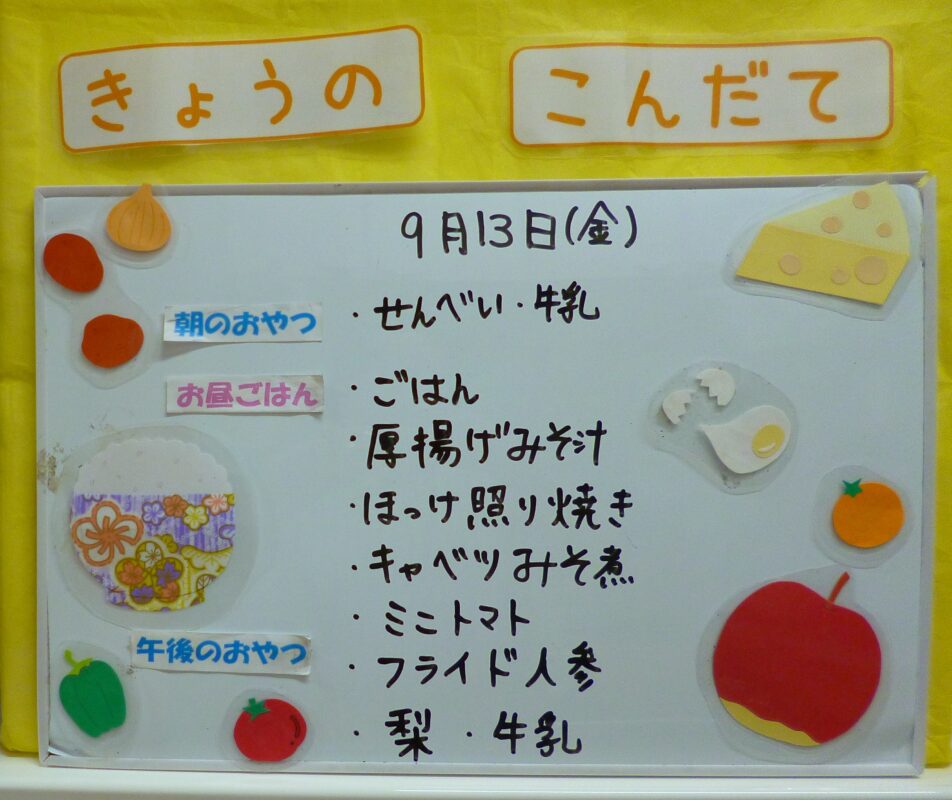 きょうの こんだて
9月13日(金)
朝のおやつ ・せんべい・牛乳
お昼ごはん ・ごはん
・厚揚げみそ汁
・ほっけ照り焼き
・キャベツみそ煮
・ミニトマト
午後のおやつ ・フライド人参
・梨・牛乳